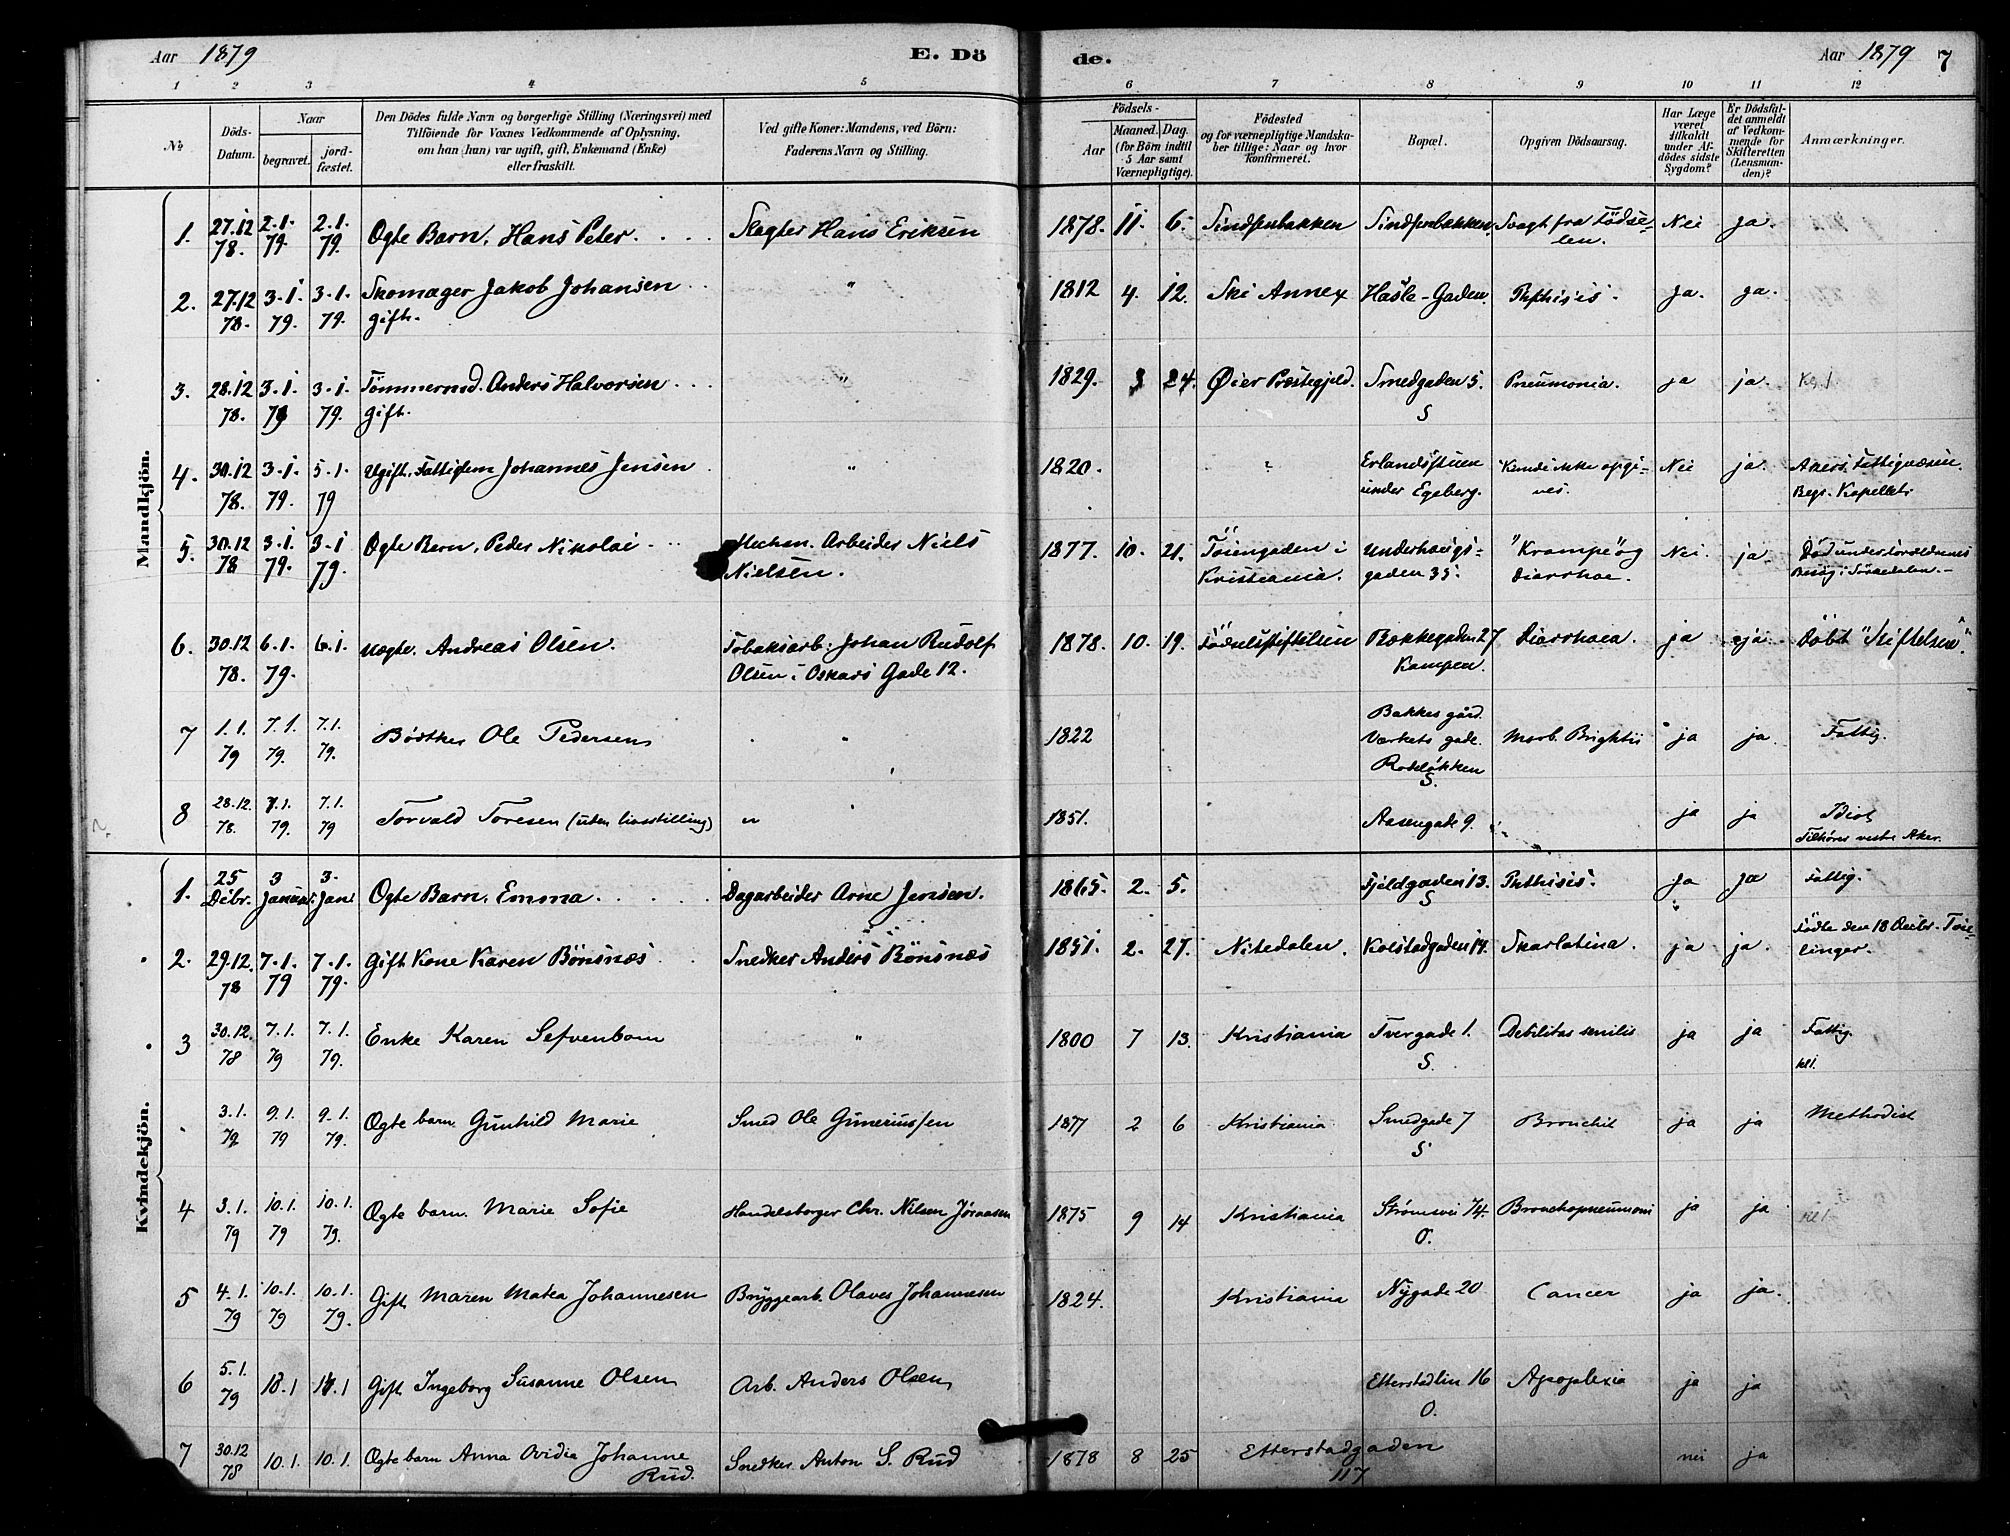 Aar 1879 E. Dö de. Aar 1879 7
1 2 3 4 5 6 7 8 9 10 11 12
No Döds-Datum. Naar begravet. jordfæstet. Den Dödes fulde Navn og borgerlige Stilling (Næringsvei) med Tilföiende for Voxnes Vedkommende af Oplysning, om han (hun) var ugift, gift, Enkemand (Enke) eller fraskilt. Ved gifte Koner: Mandens, ved Börn: Faderens Navn og Stilling. Födsels- Aar Maaned. Dag. (for Börn indtil 5 Aar samt Værnepligtige). Födested og for værnepligtige Mandskaber tillige: Naar og hvor konfirmeret. Bopæl. Opgiven Dödsaarsag. Har Læge været tilkaldt under Afdödes sidste Sygdom? Er Dödsfaldet anmeldt af Vedkommende for Skifteretten (Lensmanden)? Anmærkninger.
Mandkjön.
1. 27.12 78. 2.1. 79. 2.1. 79. Ægte Barn. Hans Peter. Slagter Hans Eriksen 1878. 11. 6. Svagt fra Födselen. Nei ja.
2. 27.12 78. 3.1. 79. 3.1. 79. Skomager Jakob Johansen gift. " 1812 4. 12. Ski Annex Hasle-Gaden. Phthisis. ja. ja.
3. 28.12 78. 3.1. 79 3.1. 79. Tömmermd. Anders Halvorsen gift. " 1829. 3 24. Øier Præstegjeld. Smedgaden 5. S Pneumonia. ja ja.
4. 30.12 78. 3.1. 79. 5.1. 79 Ugift. Fattiglem Johannes Jensen " 1820. " Erlandsstuen under Egeberg. Kunde ikke opgives. Nei ja. Akers Fattigvæsen. Begr. Kapellet.
5. 30.12 78 3.1. 79. 3.1 79. Ægte Barn. Peder Nikolai Mechan. Arbeider Niels Nielsen. 1877. 10. 21. Töiengaden i Kristiania. Underhaugsgaden 35. "Krampe" og Diarrhoe. Nei. ja.
6. 30.12 78. 6.1. 79. 6.1. Uægte. Andreas Olsen. Tobaksarb. Johan Rudolf Olsen i Oskars Gade 12. 1878. 10. 19. Födselsstiftelsen Bækkegaden 27 Kampen. Diarrhoea. ja ja. Döbt "Stiftelsen".
7 1.1. 79 7.1. 79. 7.1. 79. Bödtker Ole Pedersen 1822 Bakkes gård Værkets gade. Rodeløkken S. Morb. Brightii ja ja. Fattig.
8 28.12. 78. 7.1. 79. 7.1. 79 Torvald Toresen (uden livsstilling) " 1851. Aasengade 9. ja ja Idiot Tilhører vestre Aker.
Kvindekjön.
1. 25 Debr. 3 Januar. 3. Jan Ægte Barn. Emma. Dagarbeider Arne Jensen. 1865. 2. 5. Fjeldgaden 13. S Phthisis. ja ja Fattig.
2. 29.12. 78 7.1. 79 7.1. 79. Gift Kone Karen Bönsnæs Snedker Anders Bönsnæs 1851. 2. 27. Nitedalen. Kolstadgaden 14. Skarlatina. ja ja. Födte den 18 Decbr. Tvillinger.
3 30.12. 78 7.1. 79 7.1. 79. Enke Karen Sefvenbom " 1800 7 13. Kristiania Tvergade 1. S. Debilitas senilis ja ja Fattig. kl 1.
3.1. 79 9.1. 79 9.1. 79. Ægte barn Gunhild Marie Smed Ole Gunerius sen 1877 2 6 Kristiania Smedgade 7 S Bronchit ja ja Methodist
4 3.1. 79 10.1. 79 10.1. 79. Ægte barn. Marie Sofie Handelsborger Chr. Nilsen Jørnasen 1875 9 14 Kristiania Strømsvei 74. O. Bronchopneumoni ja ja kl 1
5 4.1. 79 10.1. 79 10.1. 79. Gift Maren Matea Johannesen Bryggearb. Olaves Johannesen 1824. Kristiania Nygade 20 Cancer ja ja.
6 5.1. 79 18.1 18.1 Gift Ingeborg Susanne Olsen Arb. Anders Olsen Etterstadlin 16 O. Apoplexia ja ja
7 30.12 78 10.1. 10.1. Ægte barn Anna Ovidia Johanne Rud. Snedker Anton S. Rud 1878 8 25 Etterstadgaden 117 nei ja